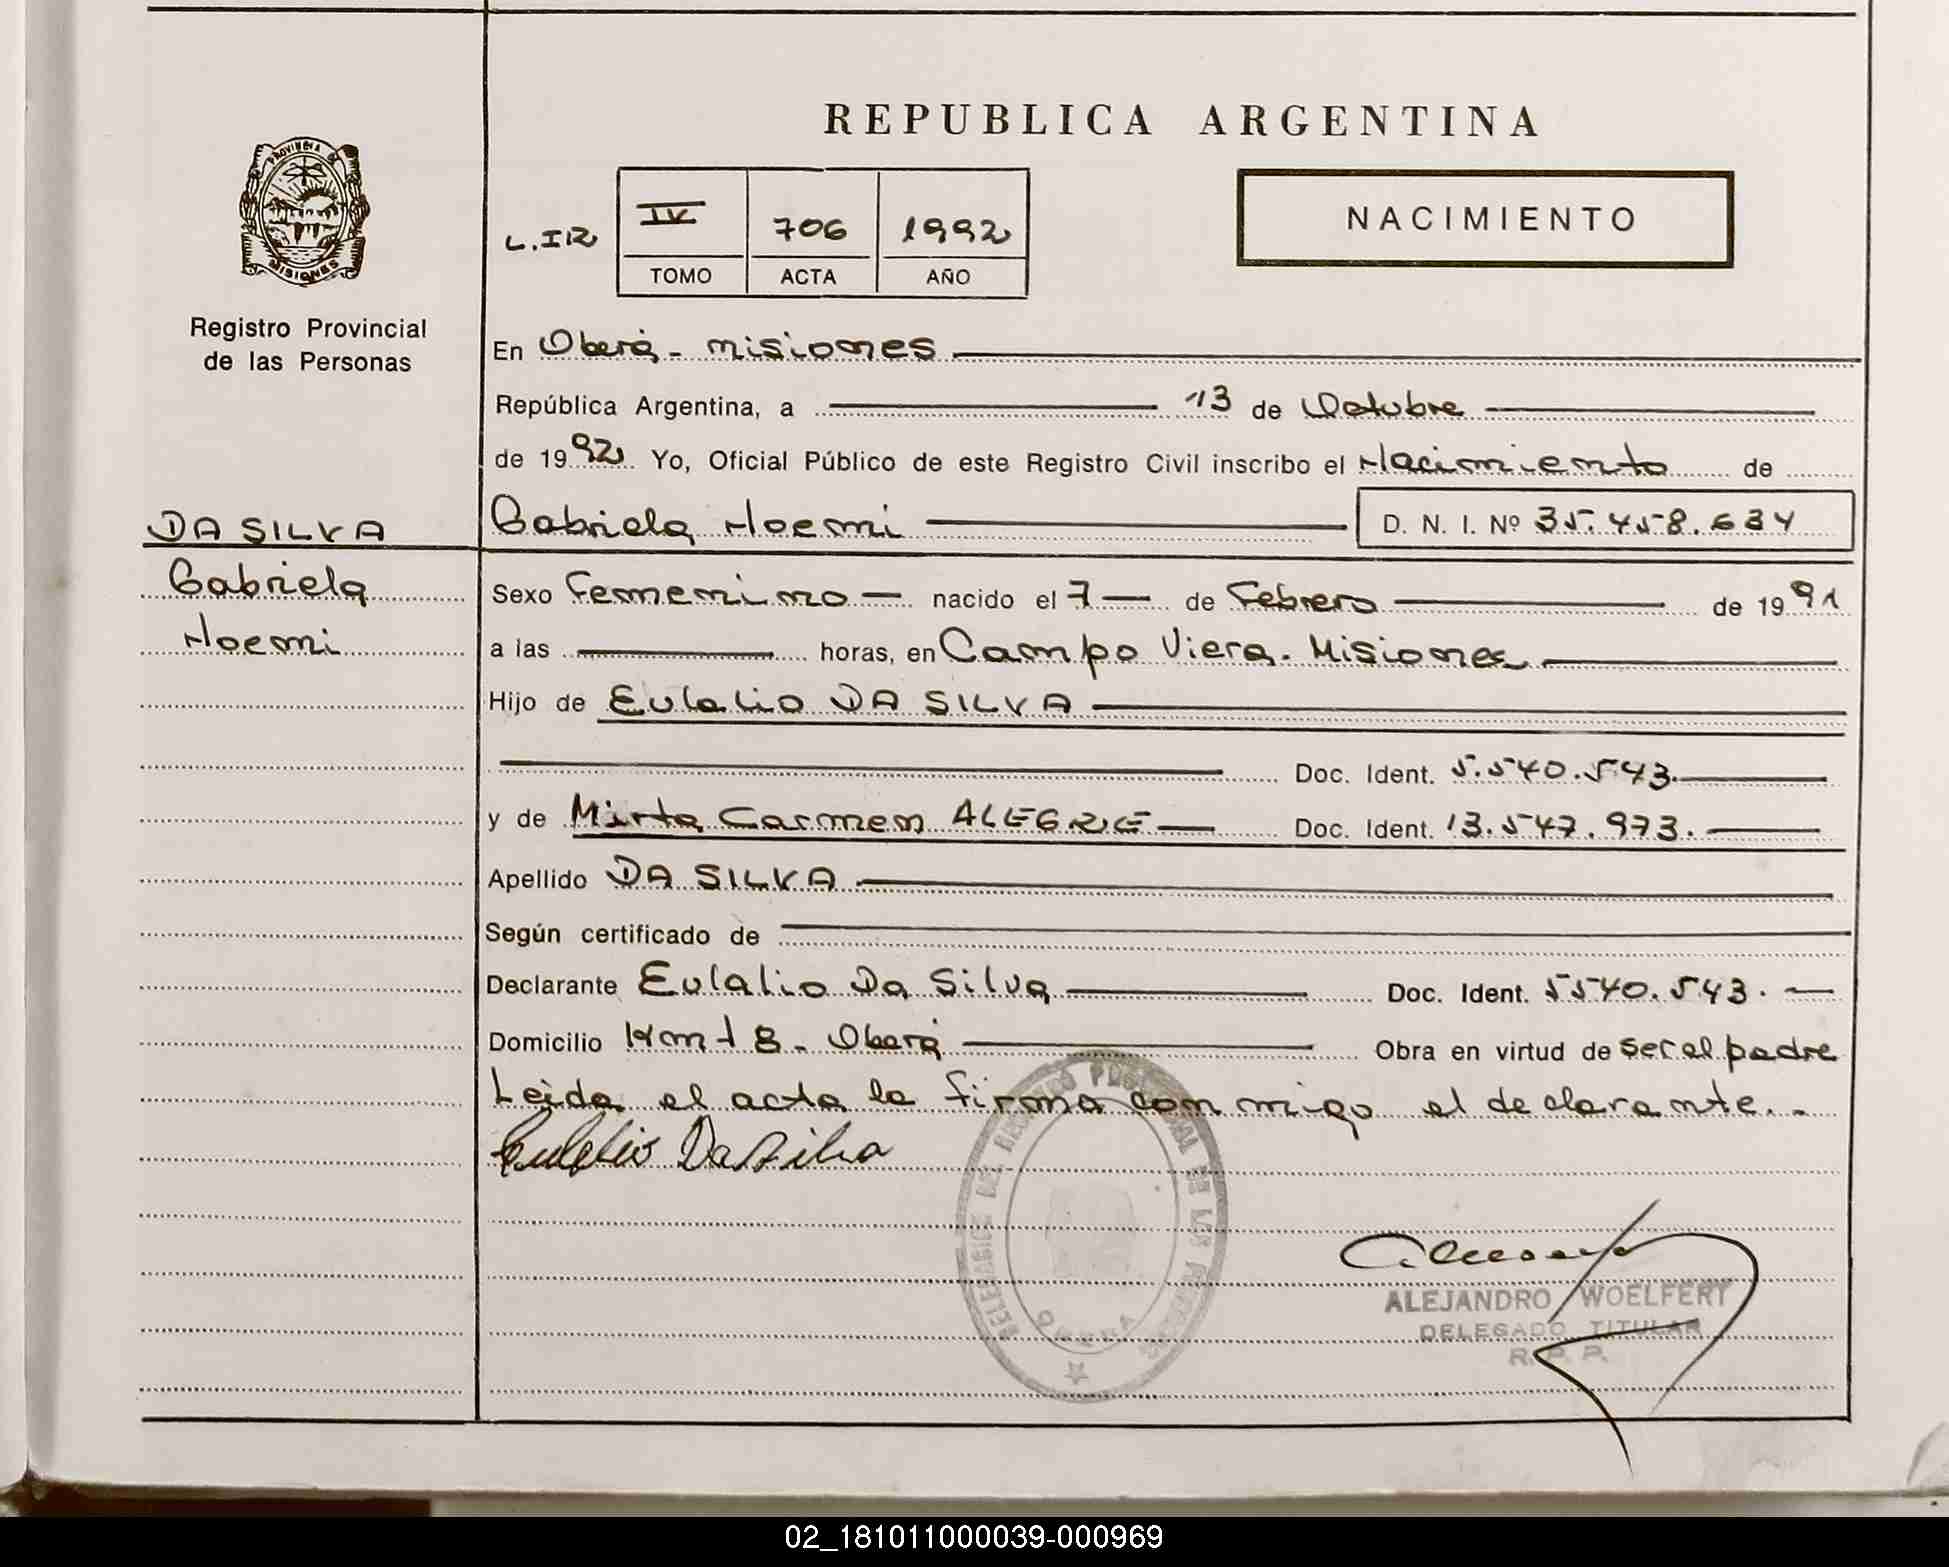 REPUBLICA ARGENTINA
PROVINCIA DE
MISIONES
Registro Provincial
de las Personas
L.IR
IV 706 1992
TOMO ACTA AÑO
NACIMIENTO
En Oberá - misiones
República Argentina, a 13 de Octubre
de 1992 Yo, Oficial Público de este Registro Civil inscribo el Nacimiento de
DA SILVA
Gabriela Noemi D. N. I. Nº 35.458.634
Gabriela
Noemi
Sexo Femenino - nacido el 7 - de Febrero de 1991
a las horas, en Campo Viera - Misiones
Hijo de Eulalio DA SILVA
Doc. Ident. 5.540.543.
y de Mirta Carmen ALEGRE Doc. Ident. 13.547.973.
Apellido DA SILVA
Según certificado de
Declarante Eulalio Da Silva Doc. Ident. 5540.543.
Domicilio Km 8 - Oberá Obra en virtud de ser el padre
Leida el acta la firma conmigo el declarante.-
Eulalio Da Silva
OBERA
ALEJANDRO WOELFERT
DELEGADO TITULAR
R. P. P.
02_181011000039-000969